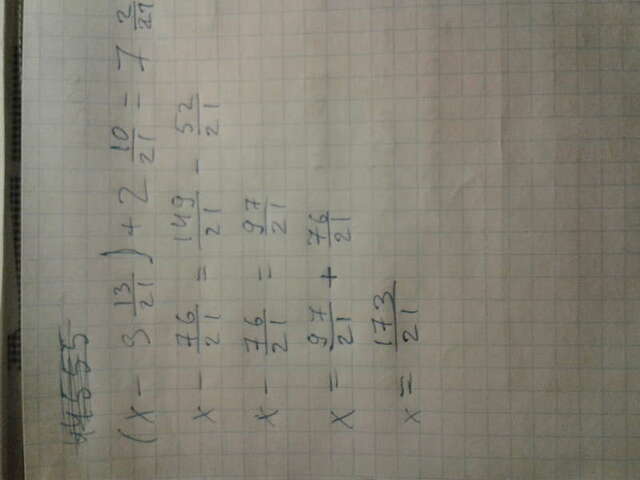 (x - 3 13/21) + 2 10/21 = 7 2/21
x - 76/21 = 149/21 - 52/21
x - 76/21 = 97/21
x = 97/21 + 76/21
x = 173/21